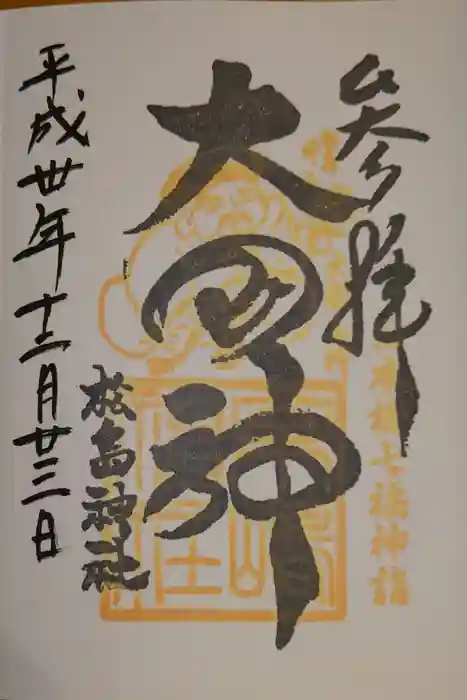 参拝
日本橋七福神詣
大国神
松島神社
平成丗年十二月廿三日